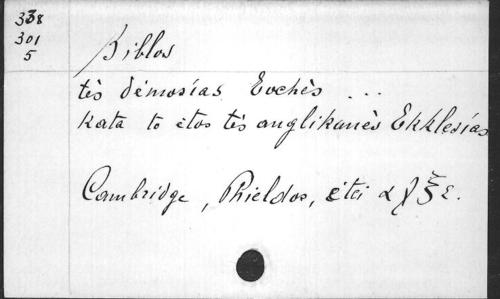 338
301
5
Biblos
tès démosías Euchès ...
kata to ètos tès anglikanès Ekklesías
Cambridge, Phieldos, étei α χ ξ ε.